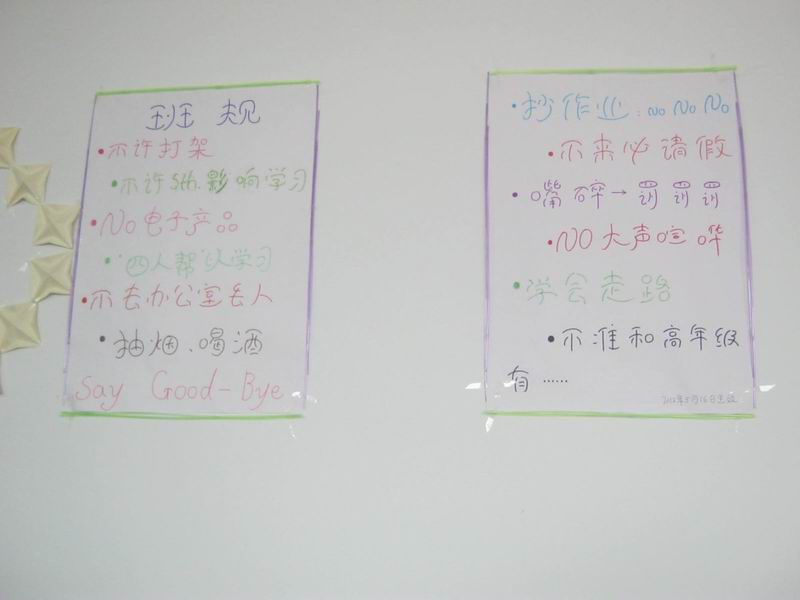 班 规
•不许打架
•不许sth.影响学习
•No电子产品
•"四人帮"以学习
•不去办公室丢人
•抽烟、喝酒
Say Good-Bye
•抄作业:No No No
•不来必请假
•嘴碎→罚罚罚
•NO大声喧哗
•学会走路
•不准和高年级
有……